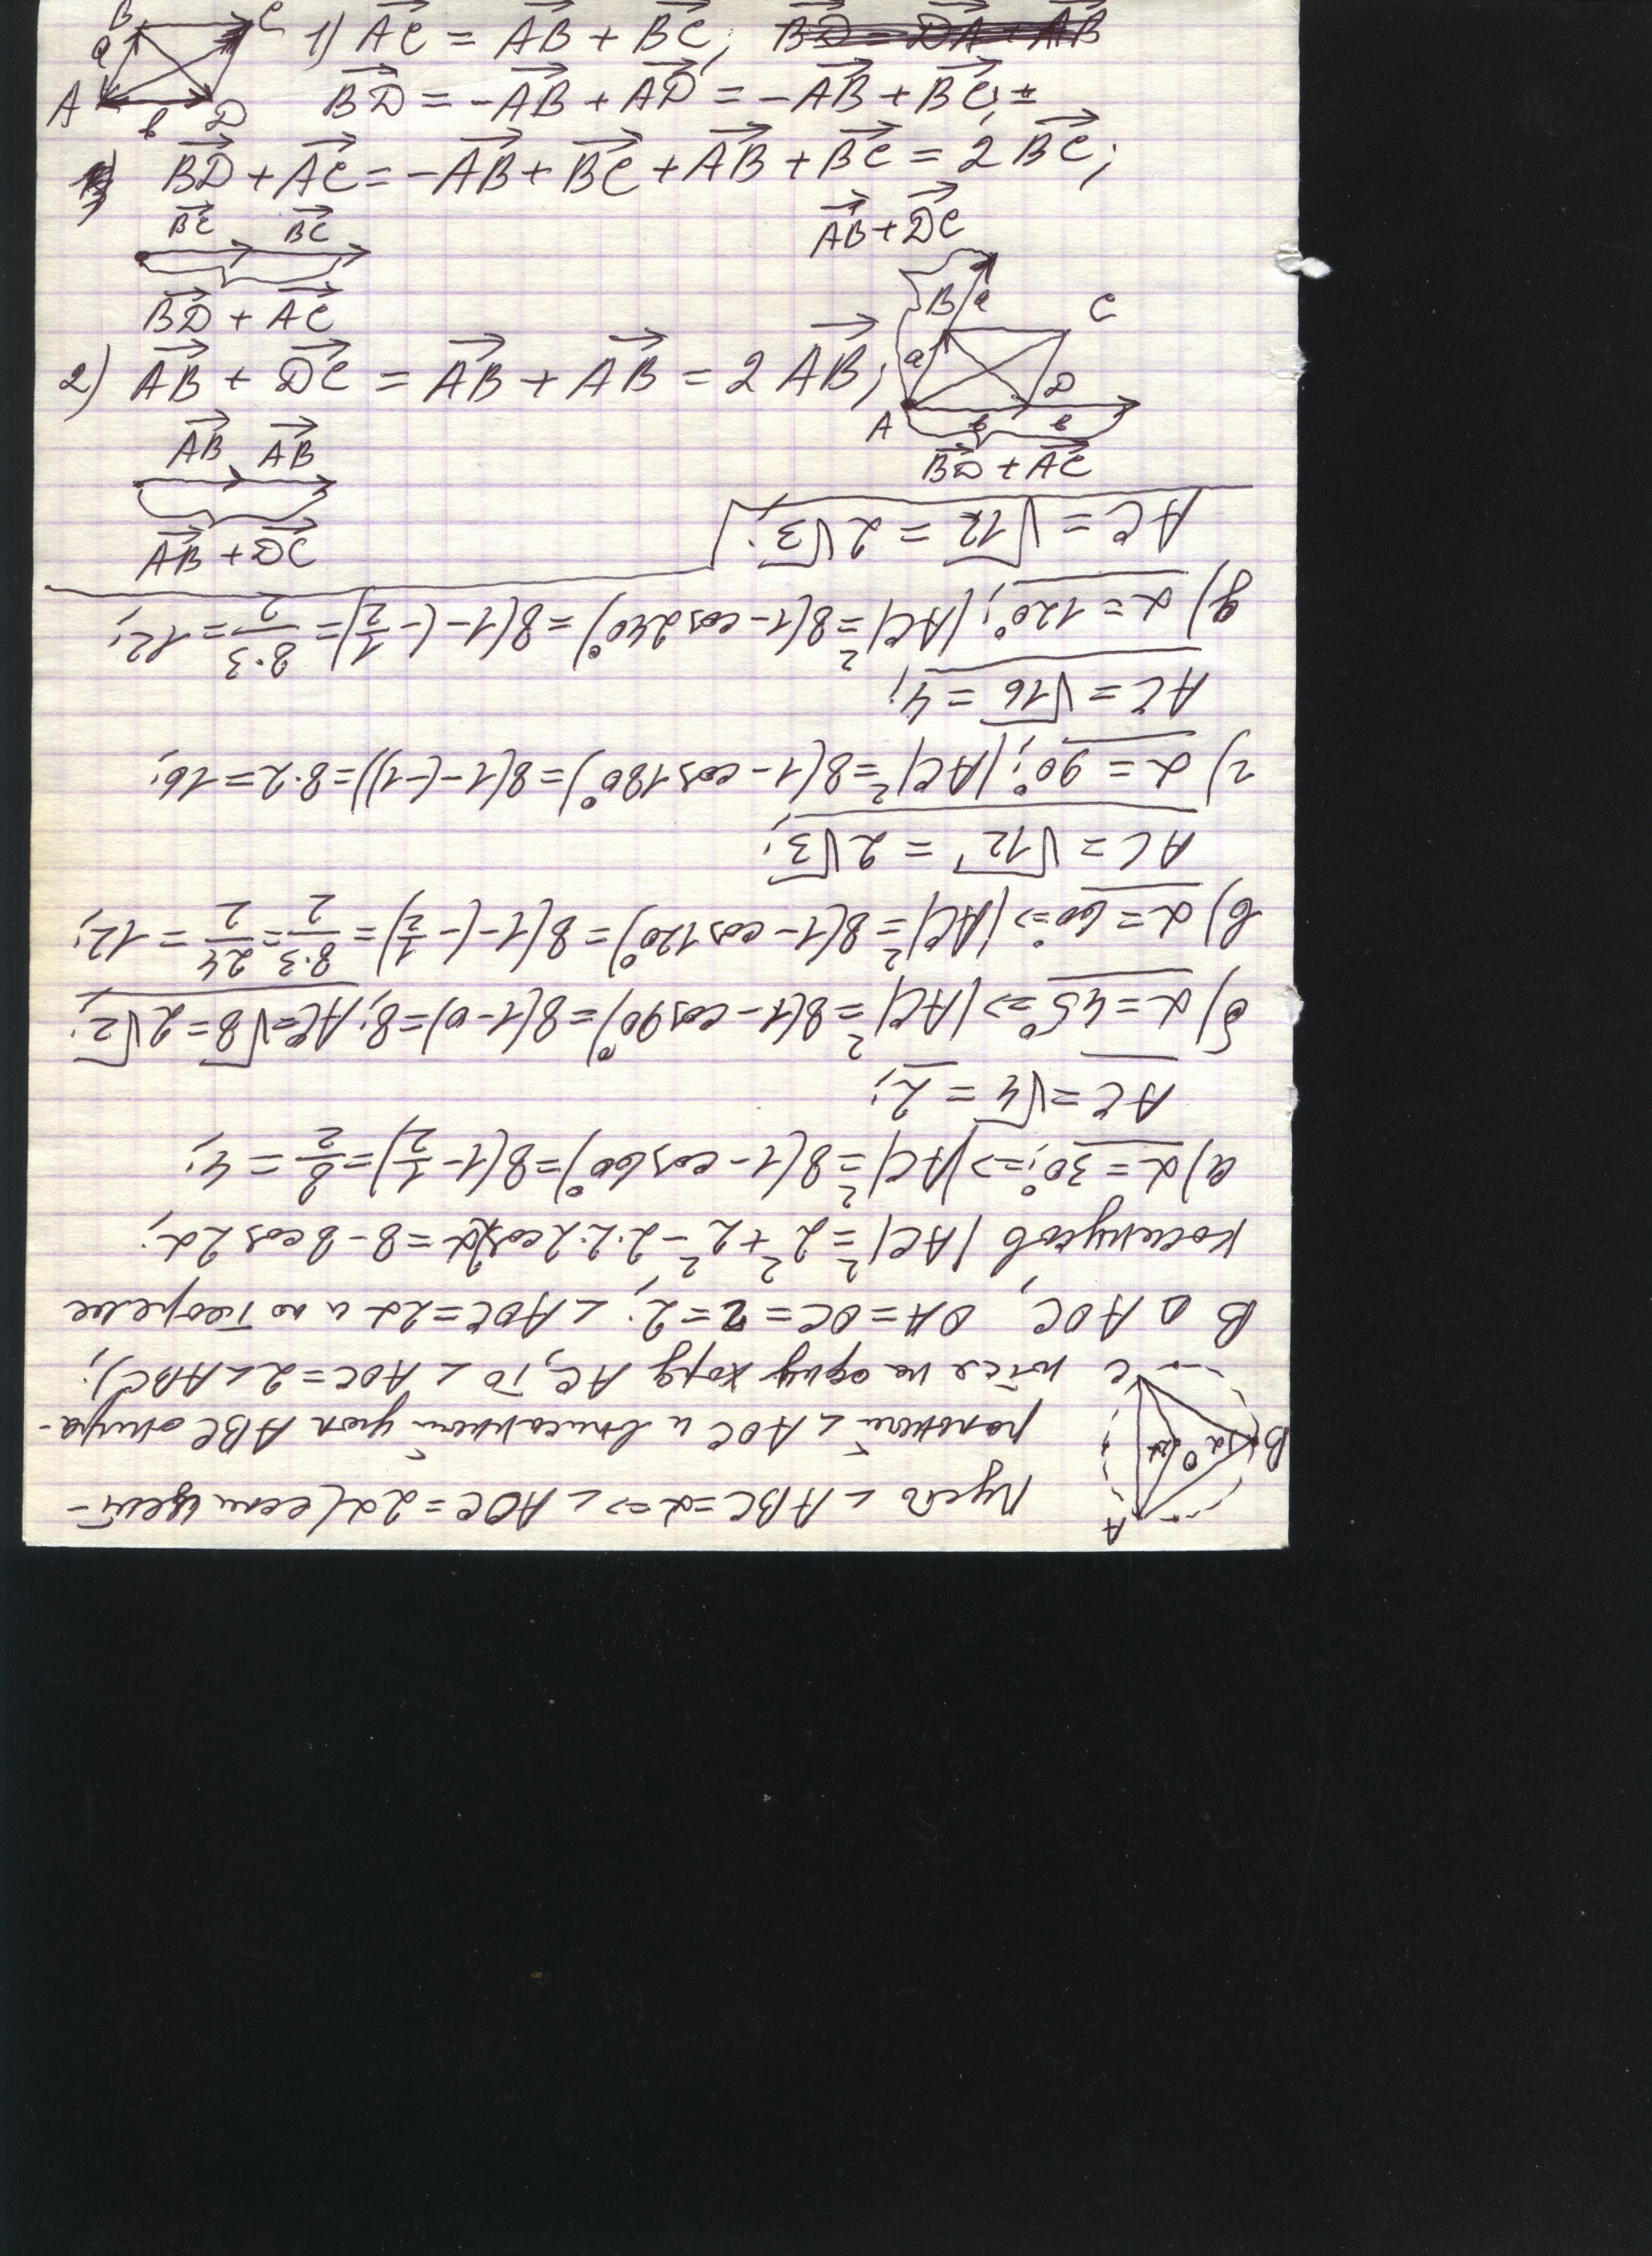 B C
a
A b D
1) AC = AB + BC; BD = DA + AB
BD = -AB + AD = -AB + BC;
BD + AC = -AB + BC + AB + BC = 2 BC;
BC BC
BD + AC
2) AB + DC = AB + AB = 2 AB;
AB AB
AB + DC
AB + DC
B a C
a D
A b b
BD + AC
A
B α O 2α
C
Пусть ∠ABC = α => ∠AOC = 2α (если цент-
ральный ∠AOC и вписанный угол ABC опира-
ются на одну хорду AC, то ∠AOC = 2∠ABC);
В △AOC, OA = OC = r = 2; ∠AOC = 2α и по теореме
косинусов |AC|² = 2² + 2² - 2·2·2cos2α = 8 - 8cos2α;
а) α = 30°; => |AC|² = 8(1 - cos60°) = 8(1 - 1/2) = 8/2 = 4;
AC = √4 = 2;
б) α = 45° => |AC|² = 8(1 - cos90°) = 8(1 - 0) = 8; AC = √8 = 2√2;
в) α = 60° => |AC|² = 8(1 - cos120°) = 8(1 - (-1/2)) = 8·3/2 = 24/2 = 12;
AC = √12 = 2√3;
г) α = 90°; |AC|² = 8(1 - cos180°) = 8(1 - (-1)) = 8·2 = 16;
AC = √16 = 4;
д) α = 120°; |AC|² = 8(1 - cos240°) = 8(1 - (-1/2)) = 8·3/2 = 12;
AC = √12 = 2√3;